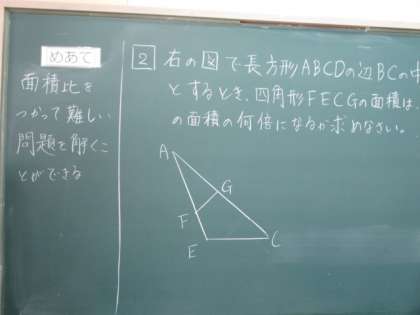 めあて
面積比を
つかって難しい
問題を解くこ
とができる
2 右の図で長方形ABCDの辺BCの中
とするとき、四角形FECGの面積は、
の面積の何倍になるか求めなさい。
A
G
F
E
C